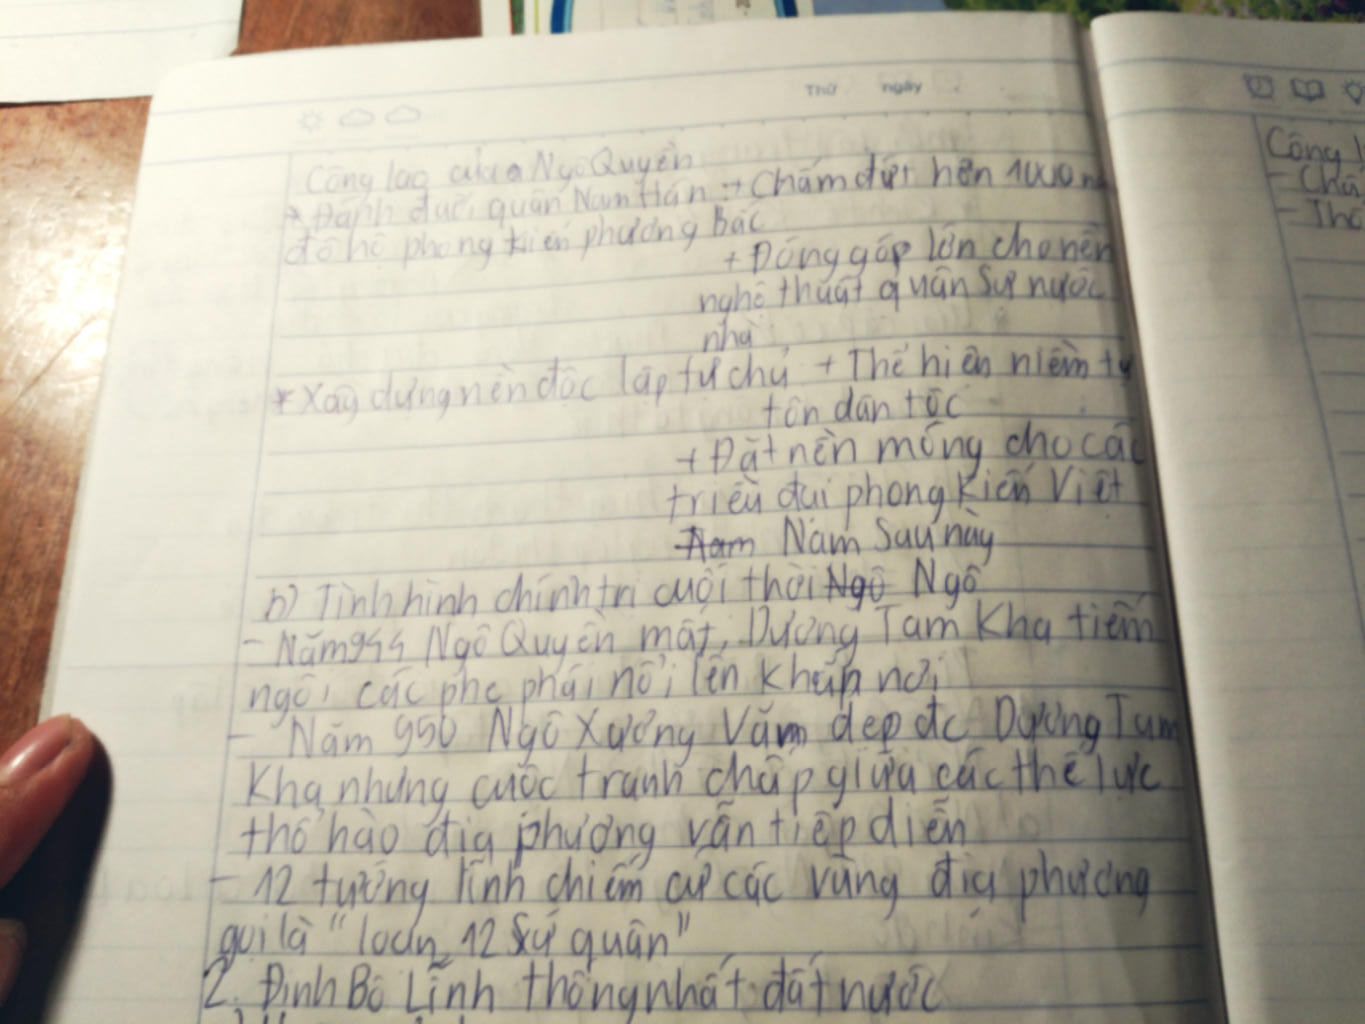 Thứ ngày
Công lao của Ngô Quyền
* Đánh đuổi quân Nam Hán + Chấm dứt hơn 1000
đô hộ phong kiến phương Bắc
+ Đóng góp lớn cho nền
nghệ thuật quân sự nước
nhà
* Xây dựng nền độc lập tự chủ + Thể hiện niềm tự
tôn dân tộc
+ Đặt nền móng cho các
triều đại phong kiến Việt
Nam Nam Sau này
b) Tình hình chính trị cuối thời Ngô Ngô
- Năm 944 Ngô Quyền mất, Dương Tam Kha tiếm
ngôi, các phe phái nổi lên khắp nơi
- Năm 950 Ngô Xương Văn dẹp đc Dương Tam
Kha nhưng cuộc tranh chấp giữa các thế lực
thổ hào địa phương vẫn tiếp diễn
- 12 tướng lĩnh chiếm cứ các vùng địa phương
gọi là "loạn 12 Sứ quân"
2. Đinh Bộ Lĩnh thống nhất đất nước
Công
- Chấ